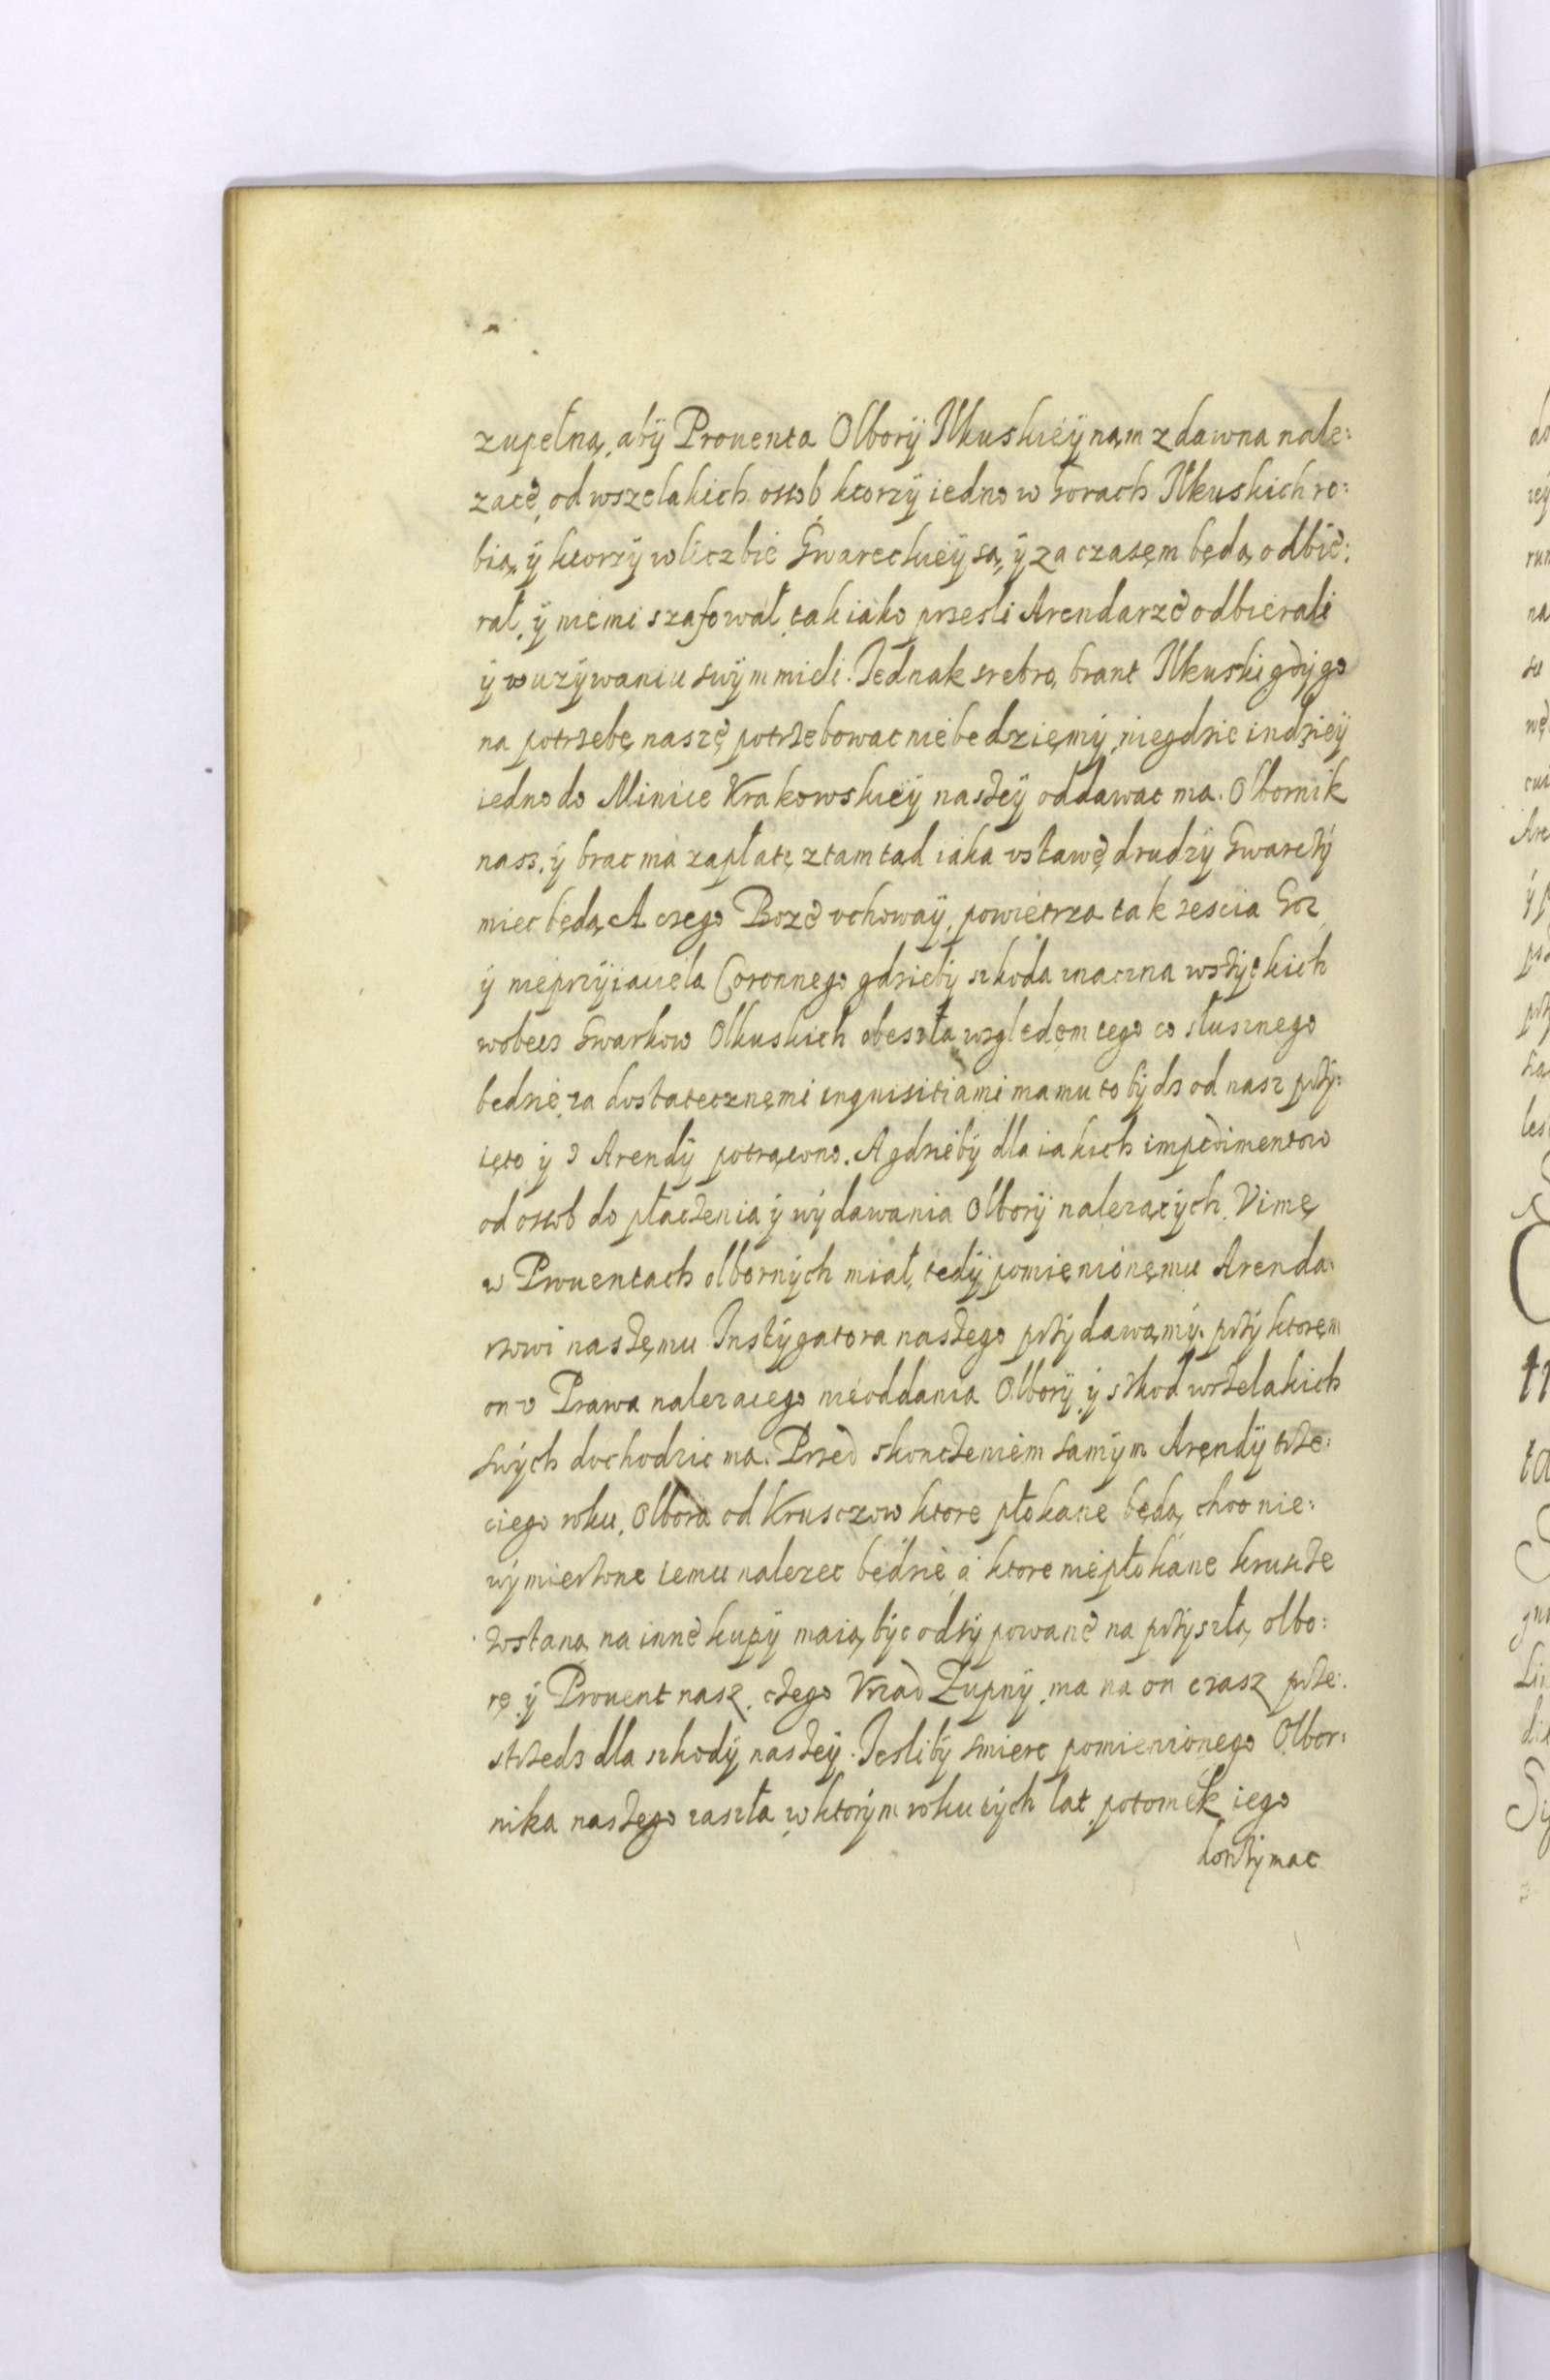 zupełną, aby Prouenta Olbory Ilkuskiey nam zdawna nale:
zace, od wszelakich osob, ktorzy iedno w Gorach Ilkuskich ro:
bią, y ktorzy w liczbie Gwareckiey są, y za czasem będą, odbie:
rał, y niemi szafował, tak iako przesli Arendarze odbierali
y w uzywaniu swym mieli. Jednak srebro, brant Ilkuski gdy go
na potrzebę naszę potrzebowac niebedziemy, niegdzie indziey
iedno do Minice Krakowskiey naszey oddawac ma. Olbornik
nasz, y brac ma zapłatę ztamtąd iaka vstawę drudzy Gwarczy
miec będą, A czego Boze vchoway, powietrza tak zescia Gor,
y nieprzyiaciela Coronnego gdzieby szkoda znaczna wszyckich
wobecz Gwarkow Olkuskich obeszła względem tego co słusznego
bedzie, za dostatecznemi inquisitiami ma mu to bydz od nasz przy:
ięto y z Arendy potrącono. A gdzieby dla iakich impedimentow
od osob do płaczenia y wydawania Olbory nalezących, Vimę
w Prouentach olbornych miał, tedy pomienionemu Arenda:
rzowi naszemu Instygatora naszego przydawamy. przy ktorem
on v Prawa nalezacego nieoddania Olbory, y szkod wszelakich
swych dochodzic ma. Przed skonczeniem samym Arendy trze:
ciego roku, Olbora od Krusczow ktore płokane będą, choc nie:
wymierzone iemu nalezec będzie, a ktore niepłokane krusze
zostaną, na inne kupy maią być odsypowane na przyszłą olbo:
rę, y Prouent nasz, czego Vrząd Zupny, ma na on czasz prze:
strzedz dla szkody naszey. Jesliby smierc pomienionego Olbor:
nika naszego zaszła w ktorym roku tych lat, potomek iego
dotrzymac